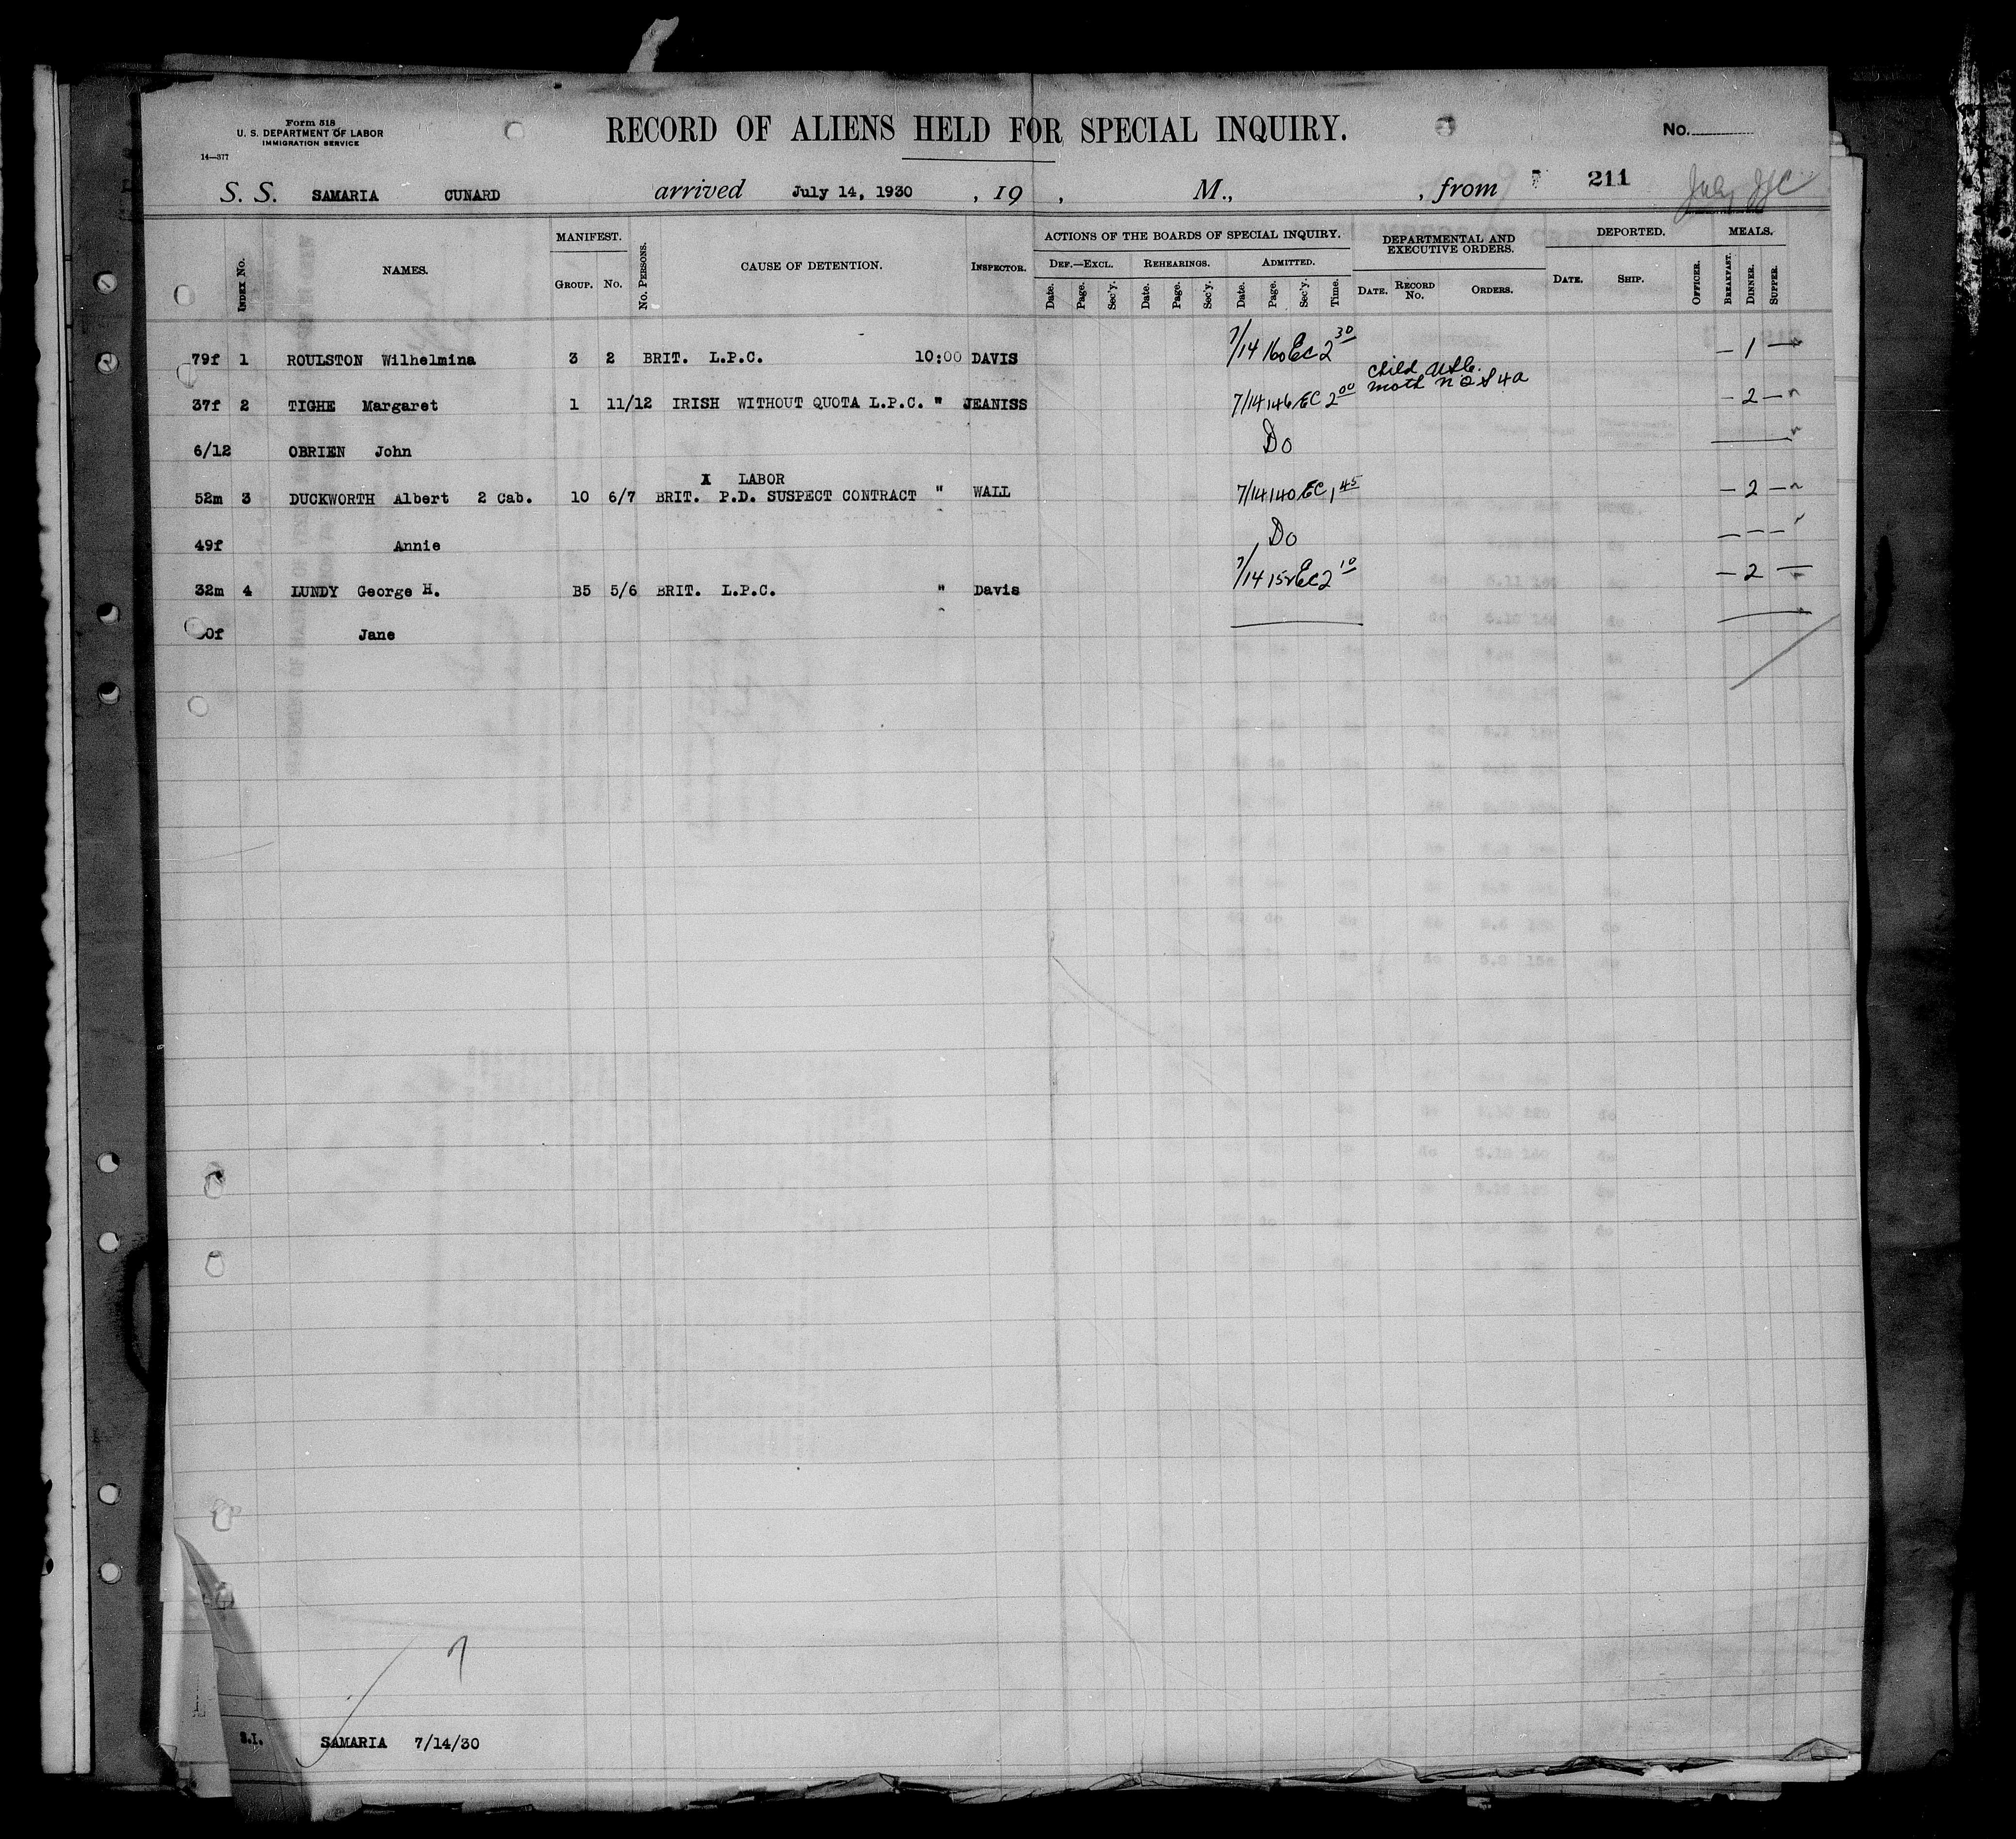 Form 518
U. S. DEPARTMENT OF LABOR
IMMIGRATION SERVICE
14—377
RECORD OF ALIENS HELD FOR SPECIAL INQUIRY.
No.
S. S. SAMARIA CUNARD arrived July 14, 1930 , 19 , M., , from 211 July
INDEX No. NAMES. MANIFEST. GROUP. No. No. PERSONS. CAUSE OF DETENTION. INSPECTOR.
ACTIONS OF THE BOARDS OF SPECIAL INQUIRY.
DEF.—EXCL. Date. Page. Sec'y. REHEARINGS. Date. Page. Sec'y. ADMITTED. Date. Page. Sec'y. Time.
DEPARTMENTAL AND EXECUTIVE ORDERS. DATE. RECORD No. ORDERS.
DEPORTED. DATE. SHIP. OFFICER.
MEALS. BREAKFAST. DINNER. SUPPER.
79f 1 ROULSTON Wilhelmina 3 2 BRIT. L.P.C. 10:00 DAVIS 7/14 160 EC 2 30 — 1 —
child
moth
37f 2 TIGHE Margaret 1 11/12 IRISH WITHOUT QUOTA L.P.C. " JEANISS 7/14 146 EC 2 00 — 2 —
6/12 OBRIEN John Do
X LABOR
52m 3 DUCKWORTH Albert 2 Cab. 10 6/7 BRIT. P.D. SUSPECT CONTRACT " WALL 7/14 140 EC 1 45 — 2 —
49f Annie Do — — —
32m 4 LUNDY George H. B5 5/6 BRIT. L.P.C. " Davis 7/14 152 EC 2 10 — 2 —
0f Jane
7
S.I. SAMARIA 7/14/30